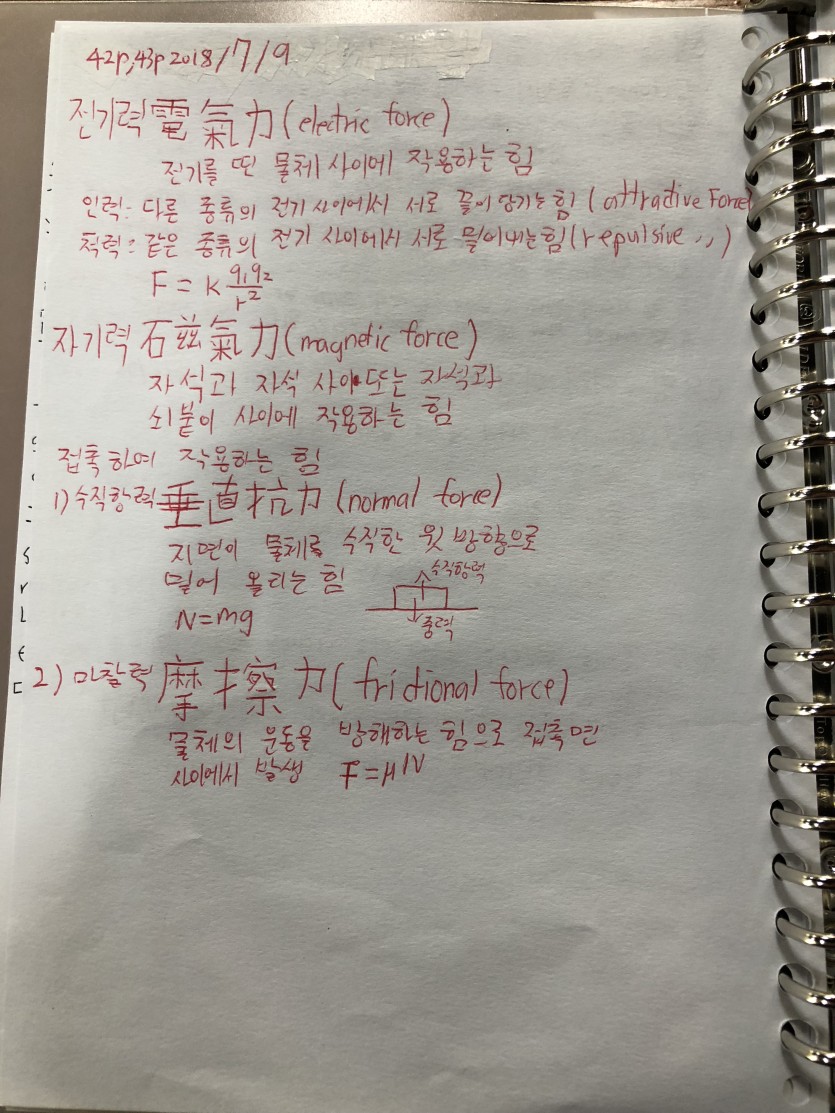 42p,43p 2018/7/9
전기력 電氣力(electric force)
전기를 띤 물체 사이에 작용하는 힘
인력: 다른 종류의 전기 사이에서 서로 끌어당기는 힘 (attractive Force)
척력: 같은 종류의 전기 사이에서 서로 밀어내는 힘(repulsive 〃)
F = k q₁q₂/r²
자기력 磁氣力(magnetic force)
자석과 자석 사이 또는 자석과
쇠붙이 사이에 작용하는 힘
접촉하여 작용하는 힘
1) 수직항력 垂直抗力 (normal force)
지면이 물체를 수직한 윗 방향으로
밀어 올리는 힘
수직항력
N=mg
중력
2) 마찰력 摩擦力(frictional force)
물체의 운동을 방해하는 힘으로 접촉면
사이에서 발생 F=μN